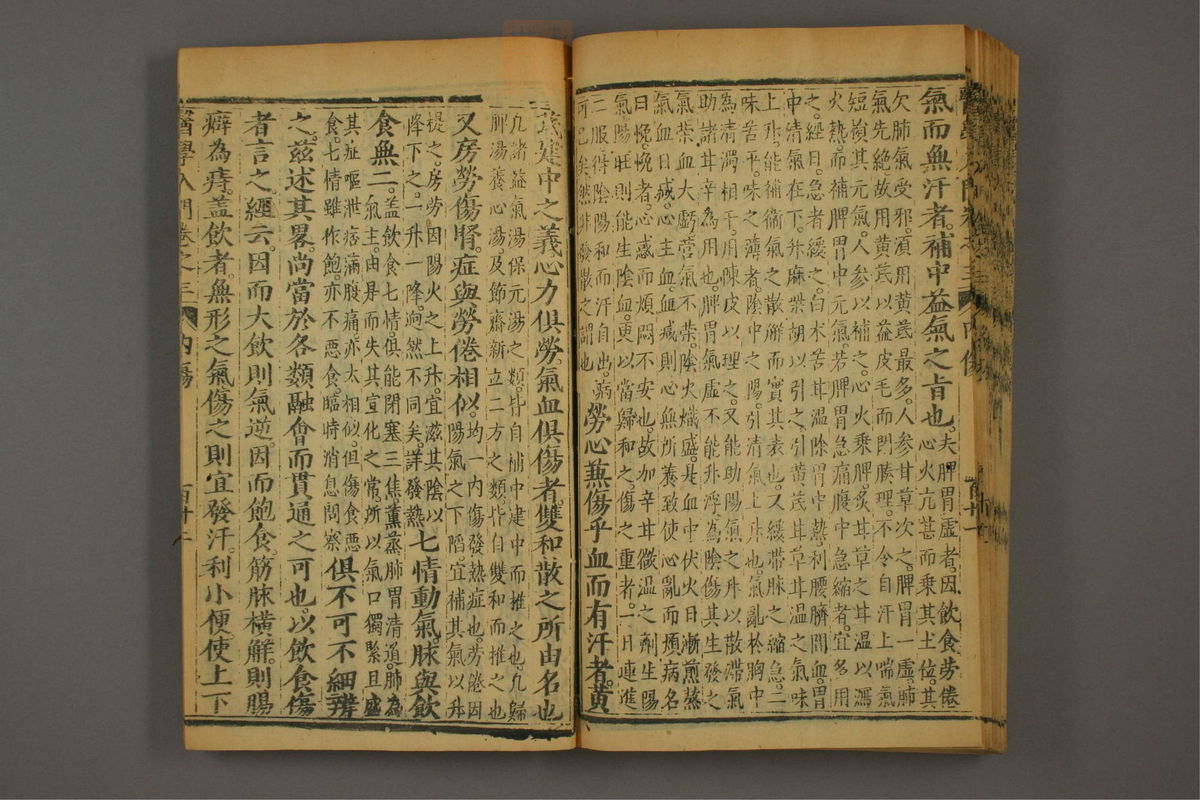 醫學入門卷之三 內傷 百十一
氣而無汗者。補中益氣之旨也。夫脾胃虛者。因飲食勞倦
心火亢甚而乘其土位。其
欠肺氣受邪。須用黃茋最多。人參甘草次之。脾胃一虛。肺
氣先絕。故用黃茋以益皮毛而閉腠理。不令自汗上喘氣
短損其元氣。人參以補之。心火乘脾。炙甘草之甘溫以瀉
火熱。而補脾胃中元氣。若脾胃急痛腹中急縮者。宜多用
之。經曰。急者緩之。白朮苦甘溫除胃中熱。利腰臍間血。胃
中清氣在下。升麻柴胡以引之。引黃茋甘草甘溫之氣味
上升。能補衛氣之散解而實其表也。又緩帶脉之縮急。二
味苦平。味之薄者。陰中之陽。引清氣上升也。氣亂於胸中
為清濁相干。用陳皮以理之。又能助陽氣之升以散滯氣
助諸甘辛為用也。脾胃氣虛不能升浮。為陰傷其生發之
氣。榮血大虧。營氣不榮。陰火熾盛。是血中伏火日漸煎熬
氣血日減。心主血。血減則心無所養。致使心亂而煩。病名
曰悗。悗者。心惑而煩悶不安也。故加辛甘微溫之劑生陽
氣。陽旺則能生陰血。更以當歸和之。傷之重者。一日連進
二服。得陰陽和而汗自出。病
可已矣。然非發散之謂也。勞心蕪傷乎血而有汗者。黃
茋建中之義。心力俱勞。氣血俱傷者。雙和散之所由名也
凡諸益氣湯保元湯之類。皆自補中建中而推之也。凡歸
脾湯養心湯及節齋新立二方之類。皆自雙和而推之也
又房勞傷腎。症與勞倦相似。均一內傷發熱症也。勞倦因
陽氣之下陷。宜補其氣以升
提之。房勞因陽火之上升。宜滋其陰以
降下之。一升一降。逈然不同矣。詳發熱。七情動氣。脉與飲
食無二。蓋飲食七情。俱能閉塞三焦。薰蒸肺胃清道。肺為
氣主。由是而失其宣化之常。所以氣口獨緊且盛
其症嘔泄痞滿腹痛。亦太相似。但傷食惡
食。七情雖作飽。亦不惡食。臨時消息問察俱不可不細辨
之。茲述其畧。尚當於各類融會而貫通之可也。以飲食傷
者言之。經云。因而大飲則氣逆。因而飽食。筋脉橫解。則腸
癖為痔。蓋飲者。無形之氣。傷之則宜發汗。利小便。使上下
醫學入門卷之三 內傷 百十二